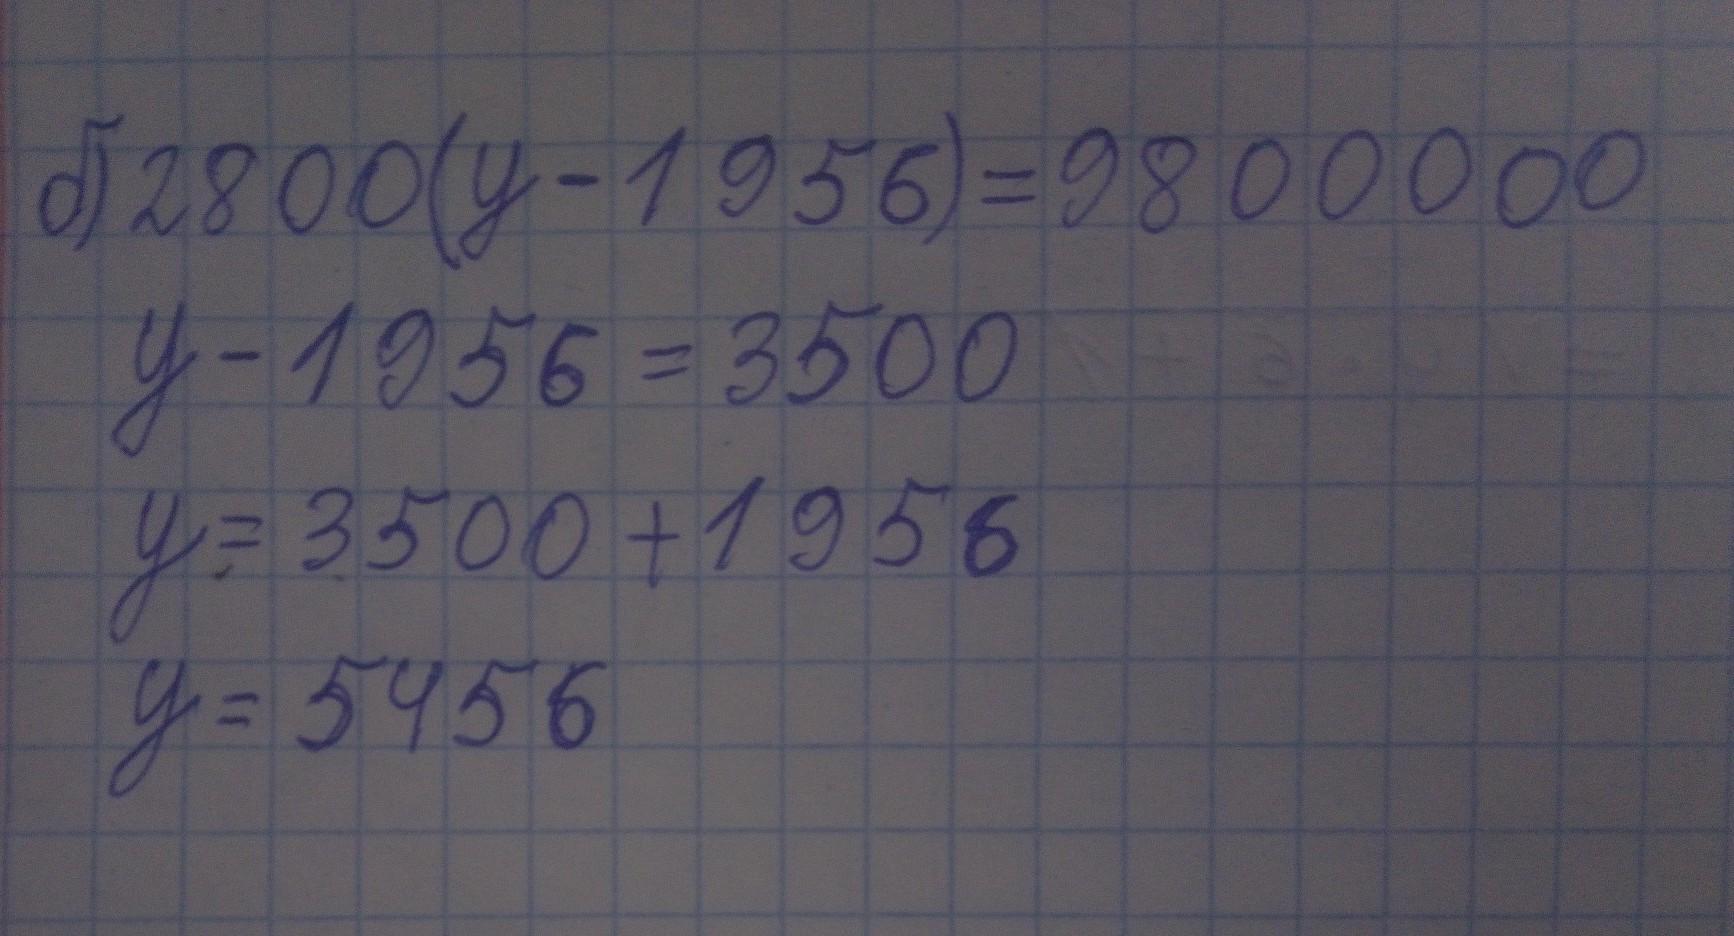 б) 2800(у-1956)=9800000
у-1956=3500
у=3500+1956
у=5456